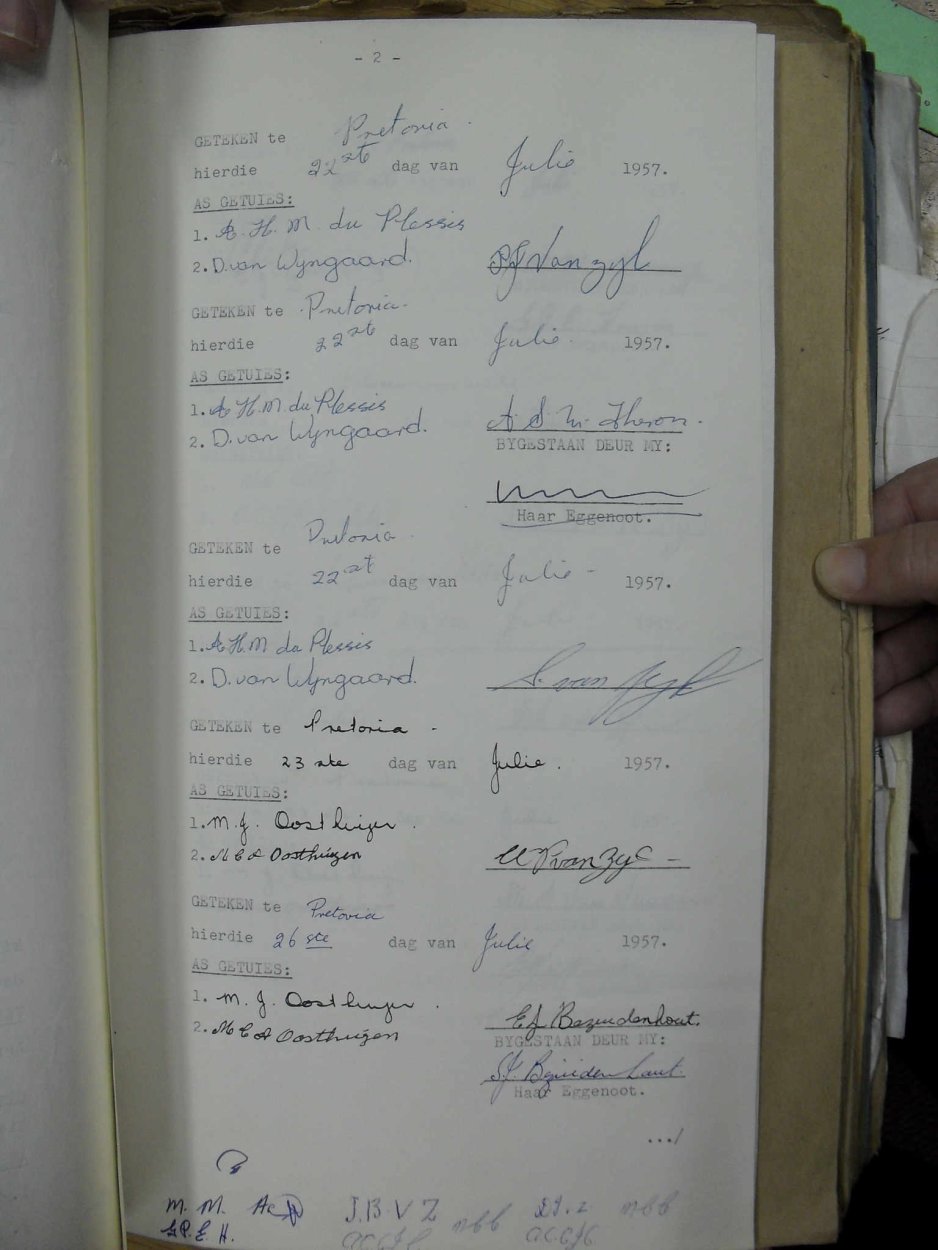 - 2 -
GETEKEN te Pretoria.
hierdie 22ste dag van Julie 1957.
AS GETUIES:
1. A. H. M. du Plessis
2. D. van Wyngaard. PJ Van Zyl
GETEKEN te Pretoria.
hierdie 22ste dag van Julie 1957.
AS GETUIES:
1. A H. M. du Plessis
2. D. van Wyngaard. A S M Theron.
BYGESTAAN DEUR MY:
Haar Eggenoot.
GETEKEN te Pretoria.
hierdie 22st dag van Julie - 1957.
AS GETUIES:
1. A H. M du Plessis
2. D. van Wyngaard. S. van Zyl
GETEKEN te Pretoria -
hierdie 23 ste dag van Julie. 1957.
AS GETUIES:
1. M. J. Oosthuizen.
2. M C A Oosthuizen van Zyl -
GETEKEN te Pretoria
hierdie 26 ste dag van Julie 1957.
AS GETUIES:
1. M. J. Oosthuizen.
2. M C A Oosthuizen EJ Bezuidenhout.
BYGESTAAN DEUR MY:
Bezuidenhout.
Haar Eggenoot.
.../
M. M. J. B. V Z